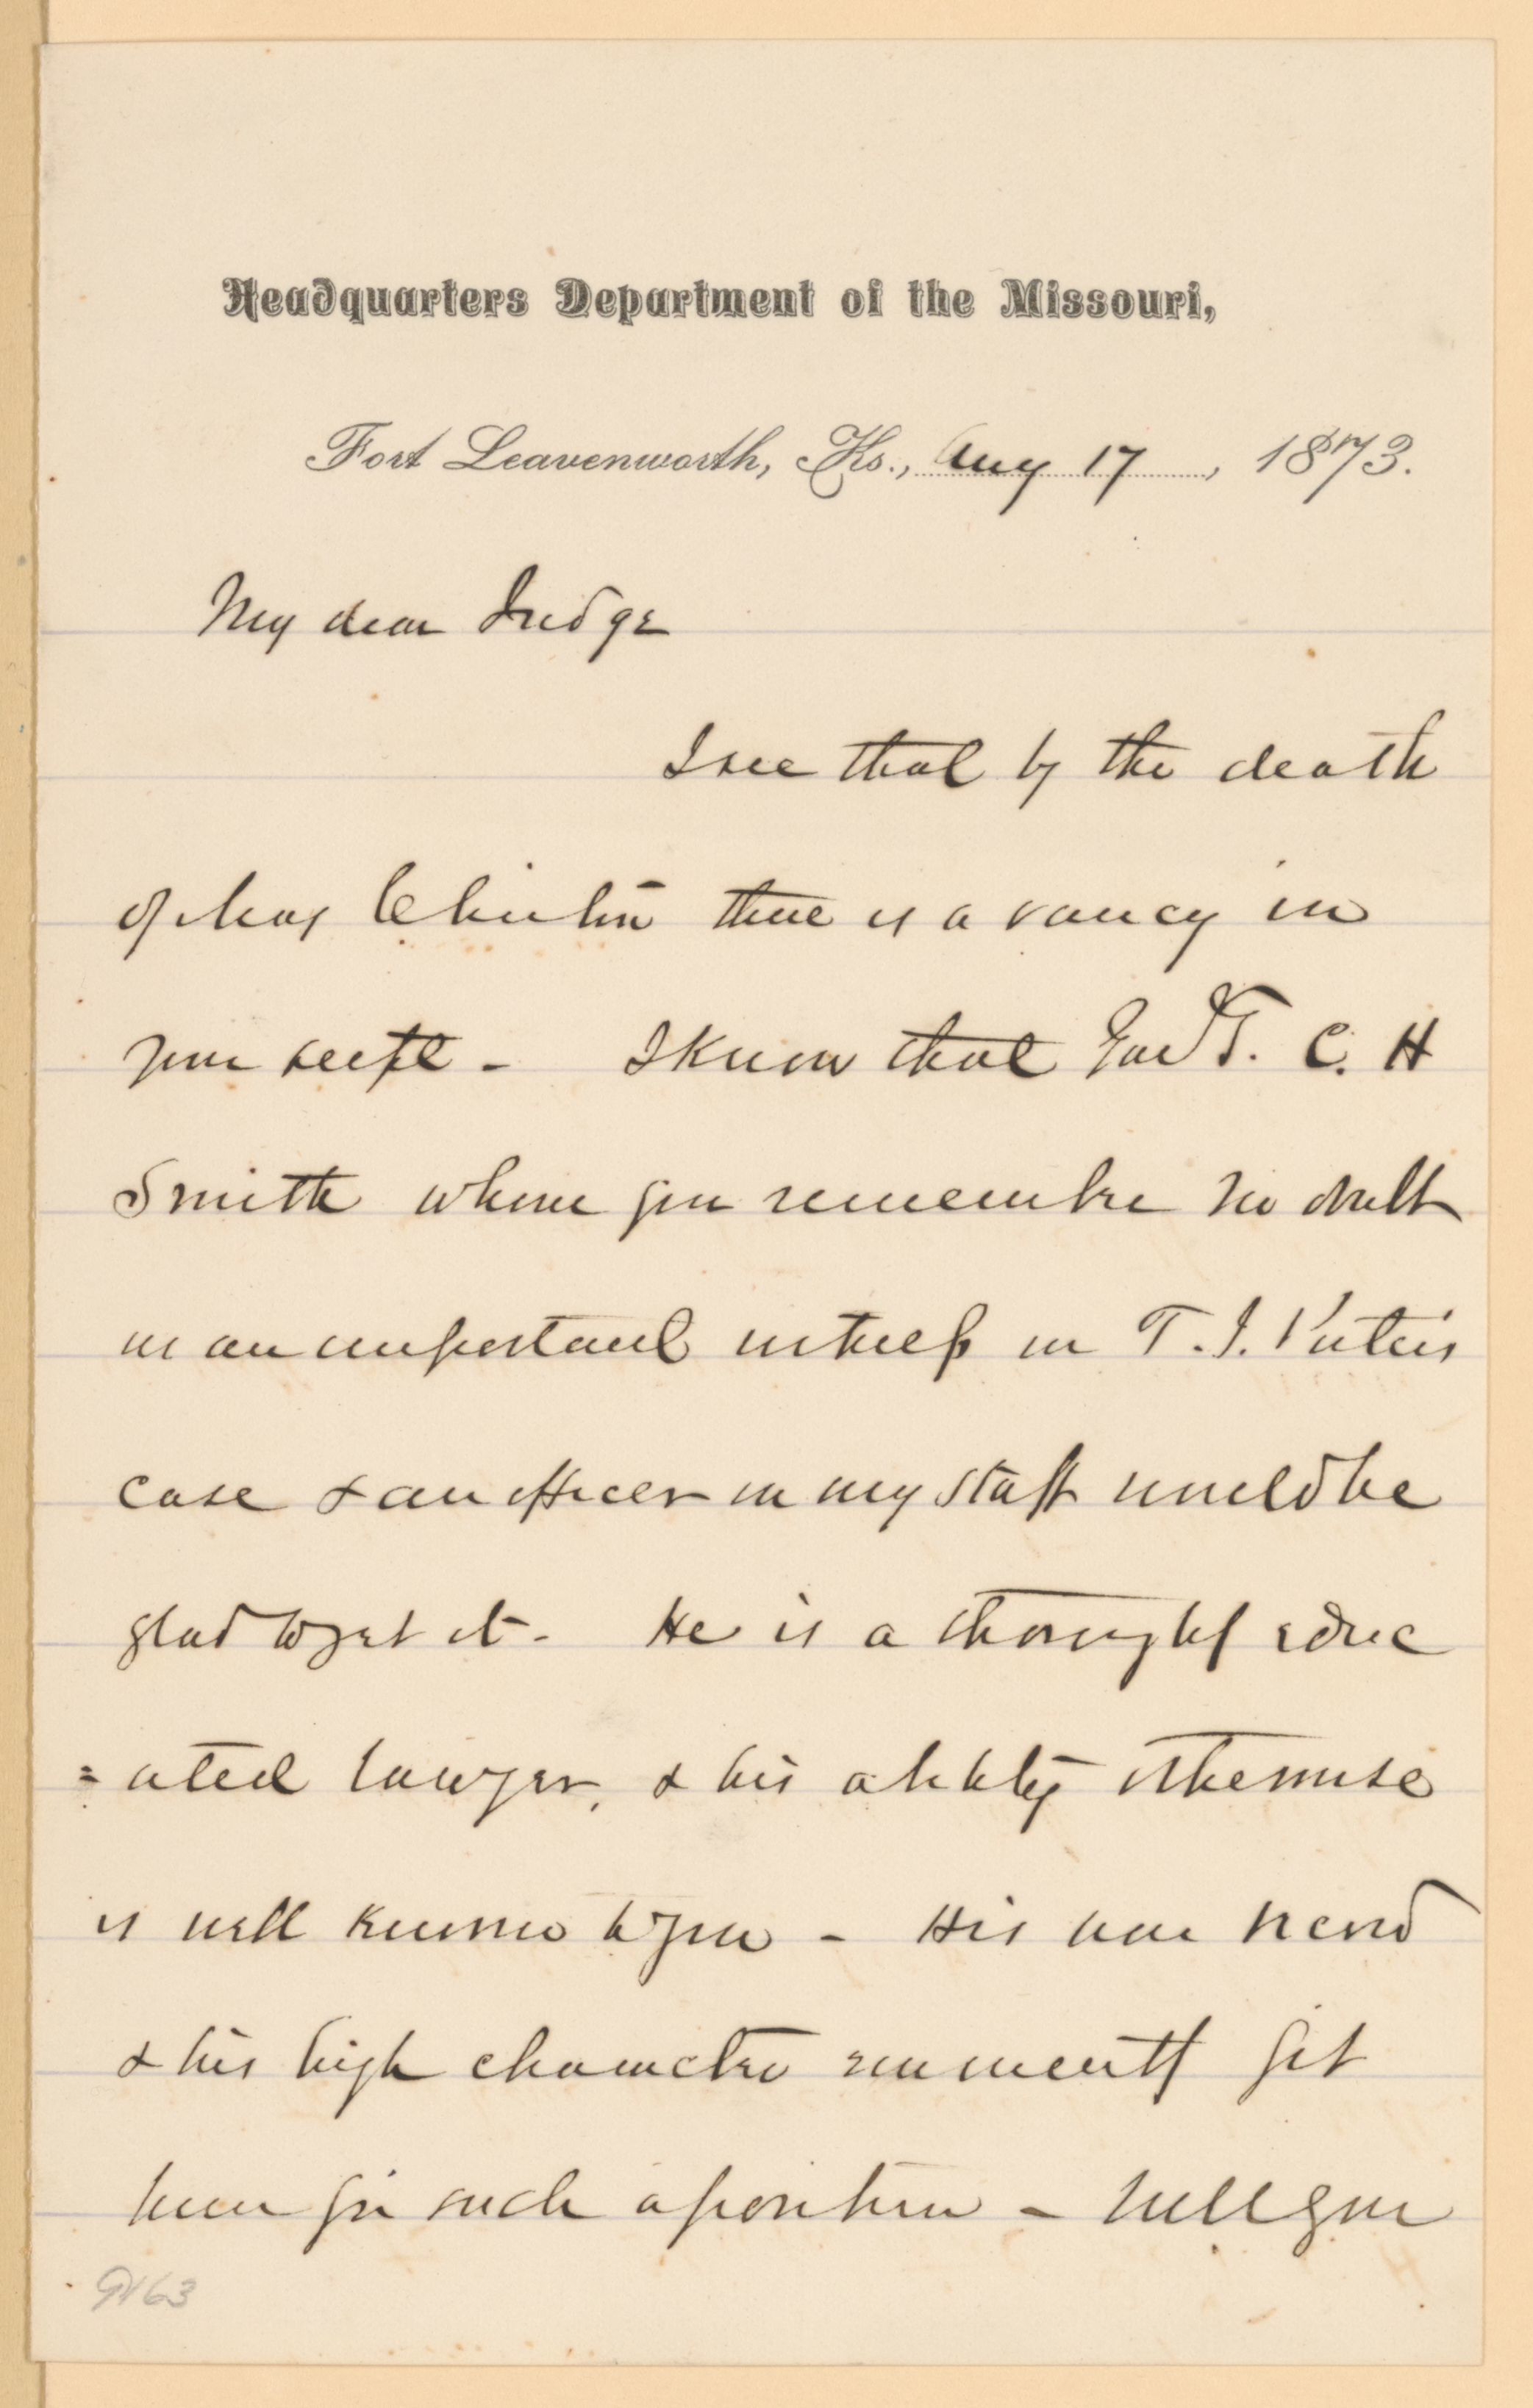 Headquarters Department of the Missouri,
Fort Leavenworth, Ks., Aug 17, 1873.
My dear Judge
I see that by the death
of Maj there is a vancy in
your - I know that Genl T. C. H
Smith whom you remember no doubt
as an important witness in F. J. Porter's
case & an officer on my staff would be
glad to get it - He is a thorough educ
=ated lawyer, & his ability otherwise
is well known to you - His war record
& his high character eminently fit
him for such a position - Will you
9163